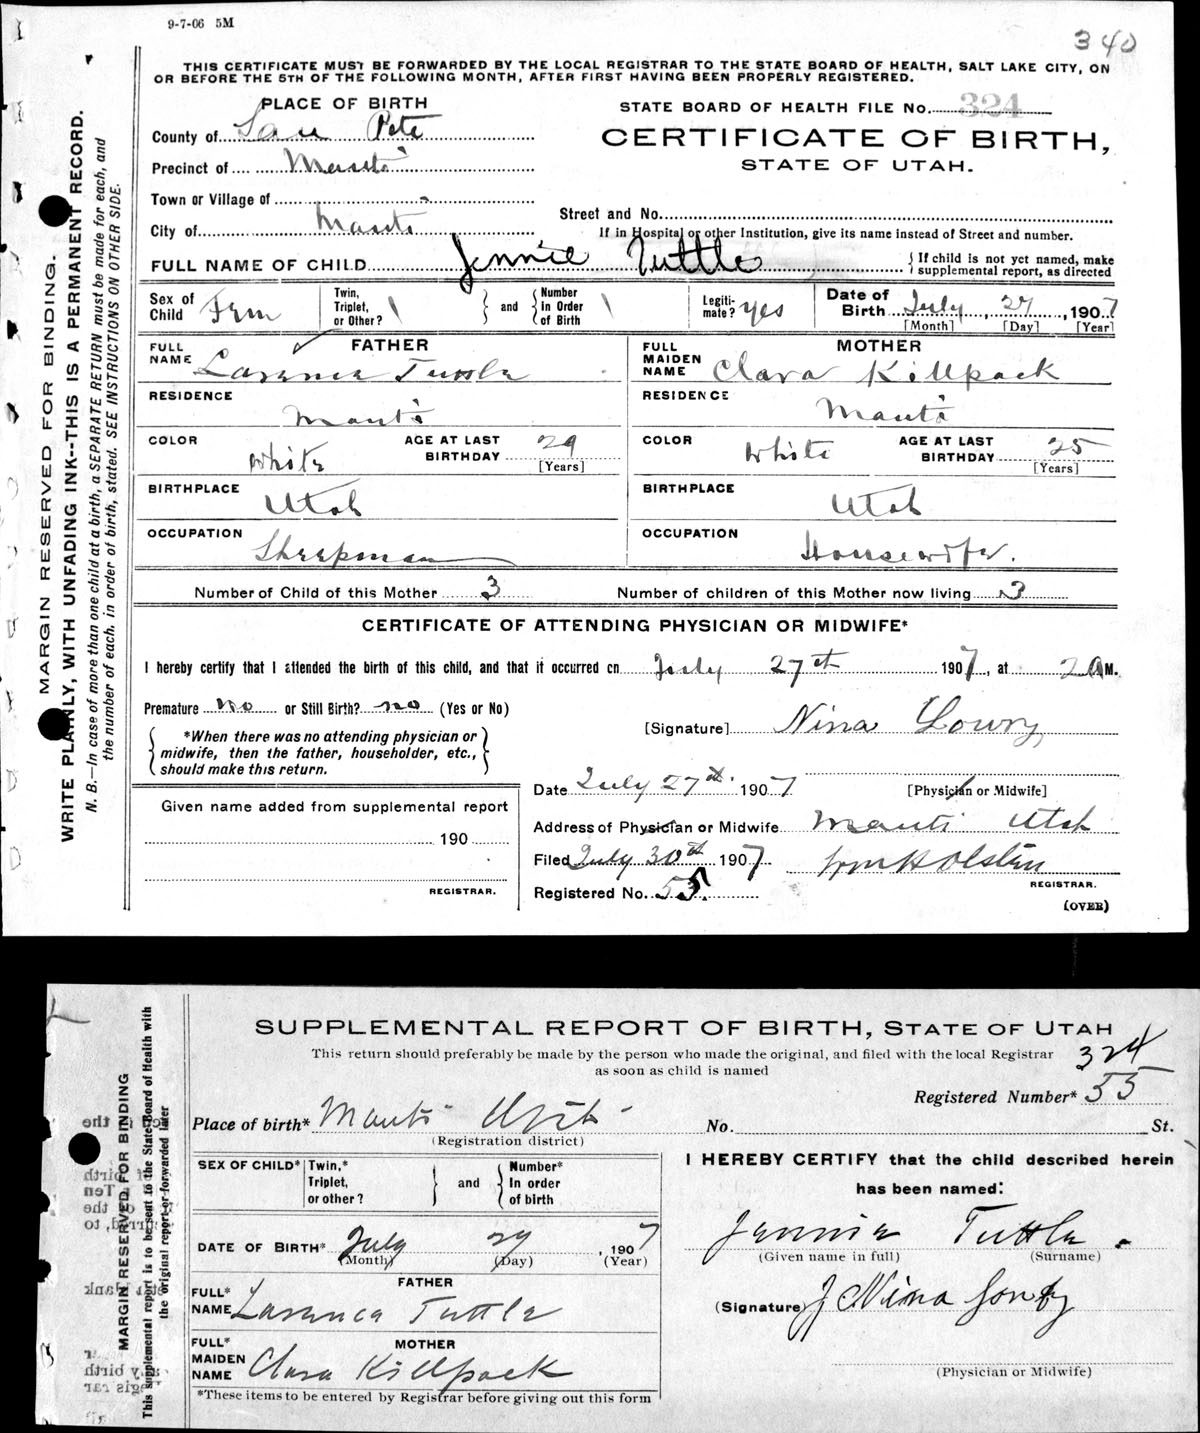 9-7-06 5M
340
THIS CERTIFICATE MUST BE FORWARDED BY THE LOCAL REGISTRAR TO THE STATE BOARD OF HEALTH, SALT LAKE CITY, ON
OR BEFORE THE 5TH OF THE FOLLOWING MONTH, AFTER FIRST HAVING BEEN PROPERLY REGISTERED.
PLACE OF BIRTH
STATE BOARD OF HEALTH FILE No. 324
County of San Pete
CERTIFICATE OF BIRTH,
STATE OF UTAH.
Precinct of Manti
Town or Village of
Street and No.
City of Manti
If in Hospital or other Institution, give its name instead of Street and number.
FULL NAME OF CHILD Jennie Tuttle
If child is not yet named, make
supplemental report, as directed
Sex of Child Fem
Twin, Triplet, or Other?
and
Number In Order of Birth
Legiti-mate? yes
Date of Birth July, 27, 1907
[Month] [Day] [Year]
FATHER
FULL NAME Larence Tuttle
MOTHER
FULL MAIDEN NAME Clara Killpack
RESIDENCE Manti
RESIDENCE Manti
COLOR White
AGE AT LAST BIRTHDAY 29 [Years]
COLOR White
AGE AT LAST BIRTHDAY 25 [Years]
BIRTHPLACE Utah
BIRTHPLACE Utah
OCCUPATION Sheepman
OCCUPATION Housewife.
Number of Child of this Mother 3
Number of children of this Mother now living 3
CERTIFICATE OF ATTENDING PHYSICIAN OR MIDWIFE*
I hereby certify that I attended the birth of this child, and that it occurred on July 27th 1907, at 2 A M.
Premature no or Still Birth? no (Yes or No)
[Signature] Nina Lowry
*When there was no attending physician or
midwife, then the father, householder, etc.,
should make this return.
Date July 27th. 1907
[Physician or Midwife]
Given name added from supplemental report
190
REGISTRAR.
Address of Physician or Midwife Manti Utah
Filed July 30th 1907 Wm Holstin
REGISTRAR.
Registered No. 55.
(OVER)
MARGIN RESERVED FOR BINDING.
WRITE PLAINLY, WITH UNFADING INK--THIS IS A PERMANENT RECORD.
N. B.—In case of more than one child at a birth, a SEPARATE RETURN must be made for each, and
the number of each, in order of birth, stated. SEE INSTRUCTIONS ON OTHER SIDE.
SUPPLEMENTAL REPORT OF BIRTH, STATE OF UTAH
This return should preferably be made by the person who made the original, and filed with the local Registrar
as soon as child is named
324
Registered Number* 55
Place of birth* Manti
(Registration district)
No. St.
SEX OF CHILD*
Twin,* Triplet, or other?
and
Number* In order of birth
I HEREBY CERTIFY that the child described herein
has been named:
Jennie Tuttle.
(Given name in full) (Surname)
DATE OF BIRTH* July 29, 1907
(Month) (Day) (Year)
FATHER
FULL* NAME Larence Tuttle
(Signature)
MOTHER
FULL* MAIDEN NAME Clara Killpack
(Physician or Midwife)
*These items to be entered by Registrar before giving out this form
MARGIN RESERVED FOR BINDING
This supplemental report is to be sent to the State Board of Health with
the original report or forwarded later